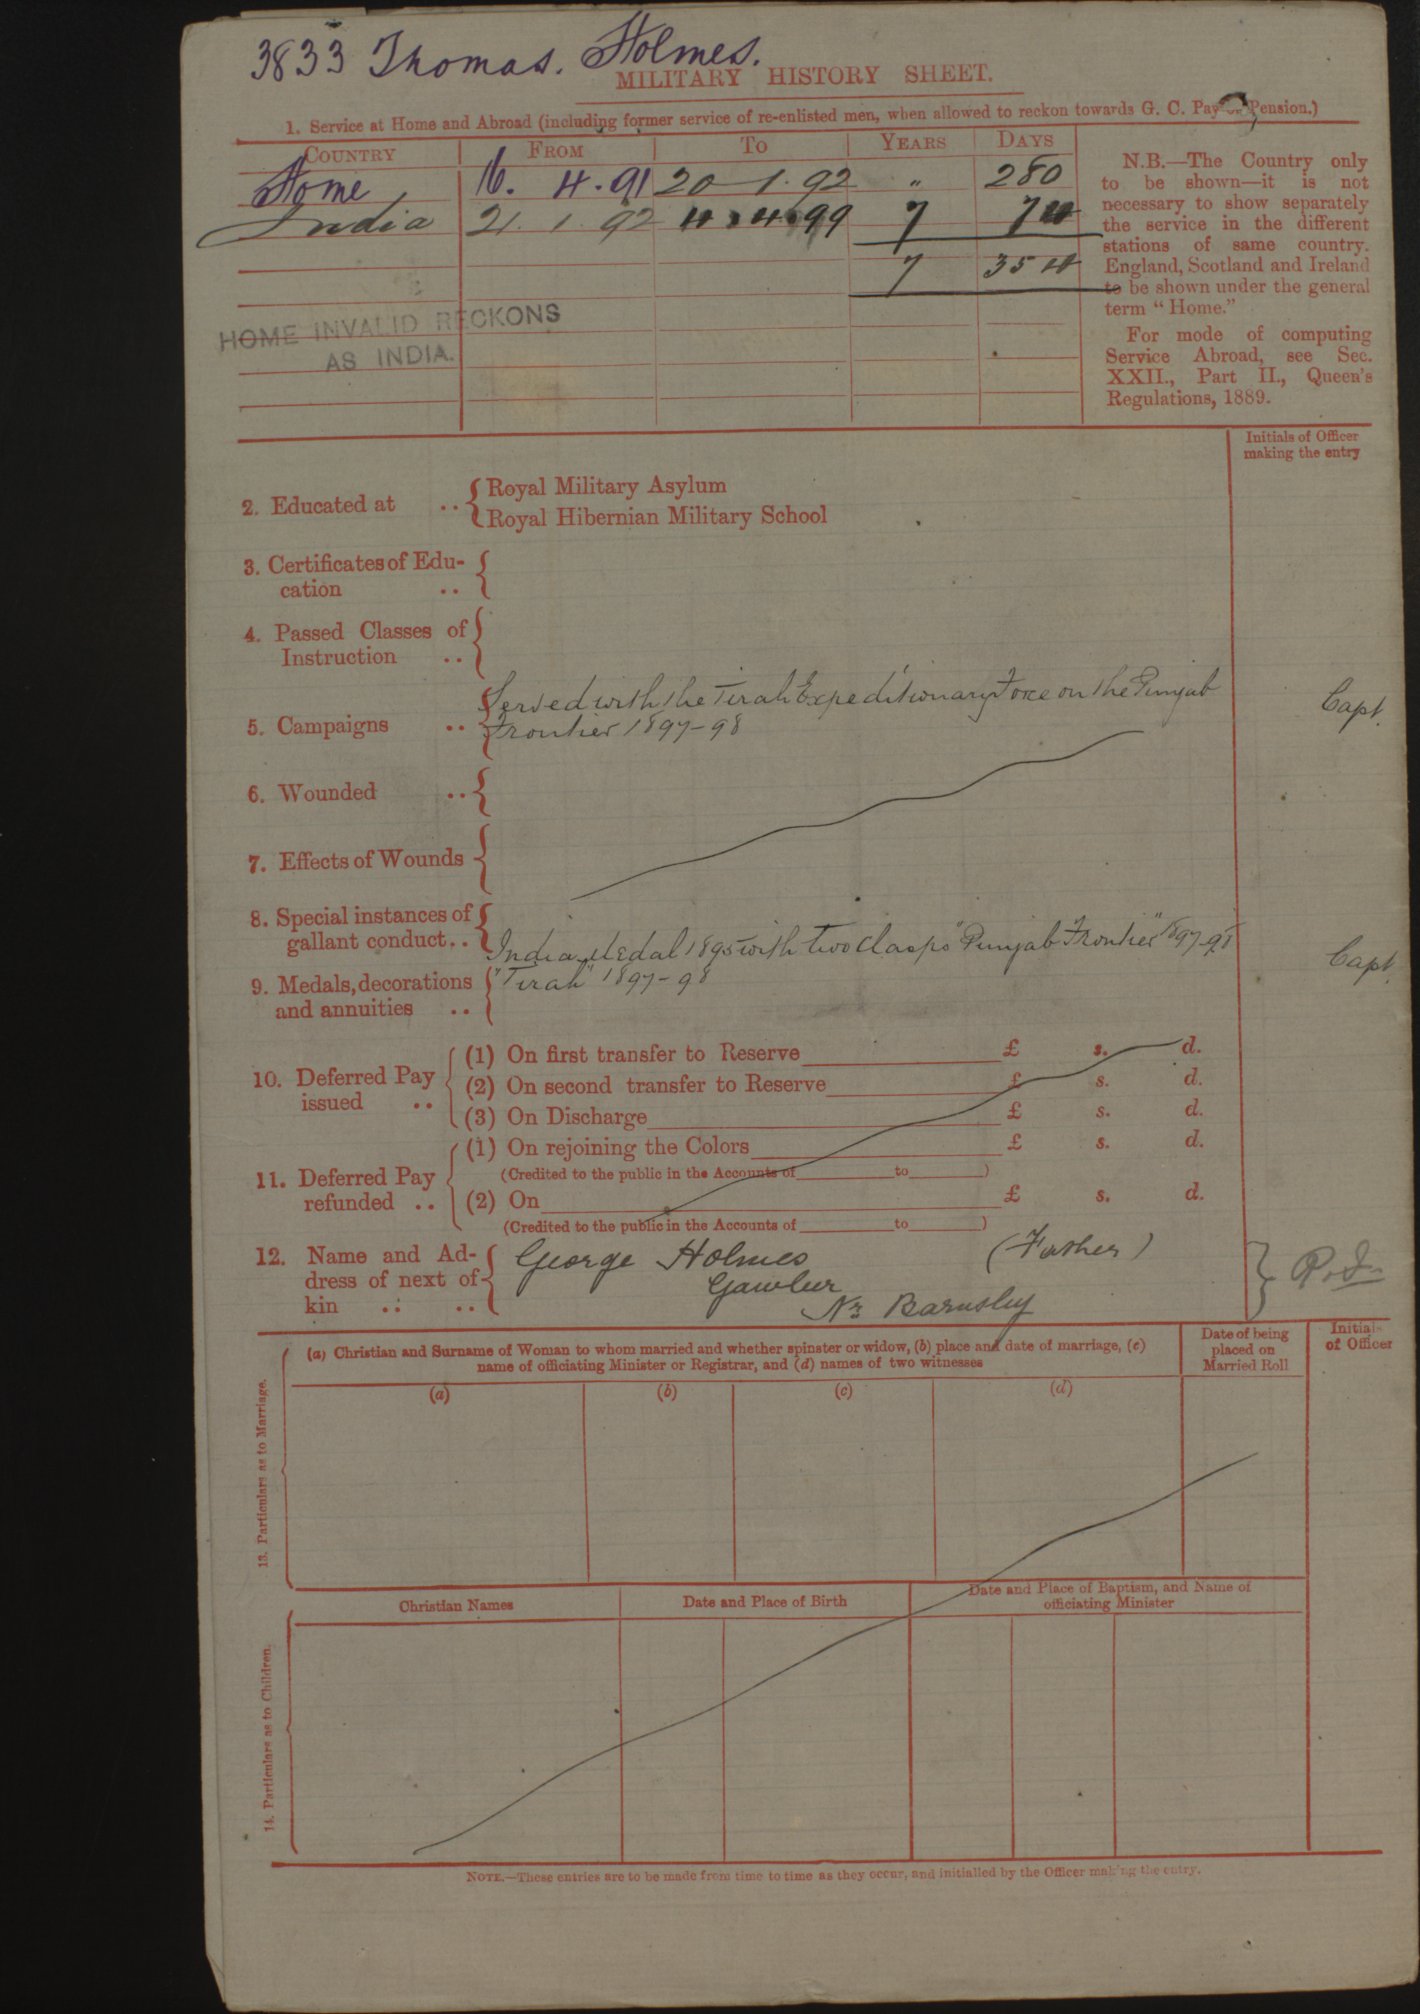 3833 Thomas. Holmes.
MILITARY HISTORY SHEET.
1. Service at Home and Abroad (including former service of re-enlisted men, when allowed to reckon towards G. C. Pay or Pension.)
COUNTRY FROM TO YEARS DAYS
Home 16. 4. 91 20 1. 92 " 280
India 21. 1 92 4. 4. 99 7 74
7 354
HOME INVALID RECKONS
AS INDIA.
N.B.—The Country only
to be shown—it is not
necessary to show separately
the service in the different
stations of same country.
England, Scotland and Ireland
to be shown under the general
term "Home."
For mode of computing
Service Abroad, see Sec.
XXII., Part II., Queen's
Regulations, 1889.
Initials of Officer
making the entry
2. Educated at .. Royal Military Asylum
Royal Hibernian Military School
3. Certificates of Edu-
cation ..
4. Passed Classes of
Instruction ..
5. Campaigns .. Served with the Tirah Expeditionary Force on the Punjab
Frontier 1897-98
Capt.
6. Wounded ..
7. Effects of Wounds
8. Special instances of
gallant conduct..
9. Medals, decorations
and annuities ..
India Medal 1895 with two clasps "Punjab Frontier" 1897-98
"Tirah" 1897-98
Capt.
10. Deferred Pay
issued ..
(1) On first transfer to Reserve £ s. d.
(2) On second transfer to Reserve £ s. d.
(3) On Discharge £ s. d.
11. Deferred Pay
refunded ..
(1) On rejoining the Colors £ s. d.
(Credited to the public in the Accounts of to )
(2) On £ s. d.
(Credited to the public in the Accounts of to )
12. Name and Ad-
dress of next of
kin .. ..
George Holmes (Father)
Gawber
Nr Barnsley
(a) Christian and Surname of Woman to whom married and whether spinster or widow, (b) place and date of marriage, (c)
name of officiating Minister or Registrar, and (d) names of two witnesses
Date of being
placed on
Married Roll
Initials
of Officer
13. Particulars as to Marriage.
(a) (b) (c) (d)
14. Particulars as to Children.
Christian Names Date and Place of Birth Date and Place of Baptism, and Name of
officiating Minister
NOTE.—These entries are to be made from time to time as they occur, and initialled by the Officer making the entry.